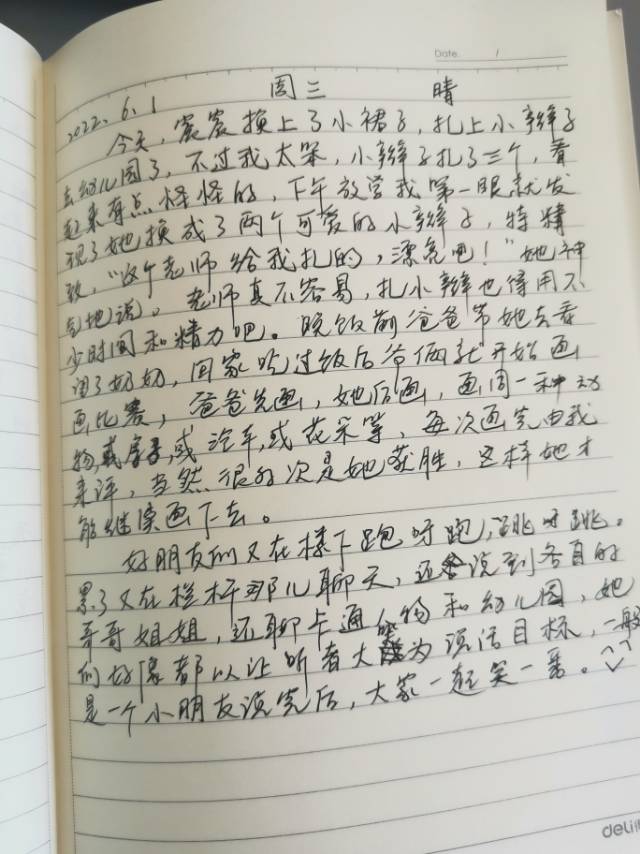 Date. /
2022.6.1 周三 晴
今天,宸宸换上了小裙子,扎上小辫子
去幼儿园了,不过我太笨,小辫子扎了三个,看
起来有点怪怪的,下午放学我第一眼就发
现了她换成了两个可爱的小辫子,特精
致,“这个老师给我扎的,漂亮吧!”她神
气地说。老师真不容易,扎小辫也得用不
少时间和精力吧。晚饭前爸爸带她去看
望了奶奶,回家吃过饭后爷俩就开始画
画比赛,爸爸先画,她后画,画同一种动
物,或房子,或汽车,或花朵等,每次画完由我
来评,当然很多次是她获胜,这样她才
能继续画下去。
好朋友们又在楼下跑呀跑,跳呀跳。
累了又在栏杆那儿聊天,还会说到各自的
哥哥姐姐,还聊卡通人物和幼儿园,她
们好像都以让听者大笑为说话目标,一般
是一个小朋友说完后,大家一起笑一番。
deli